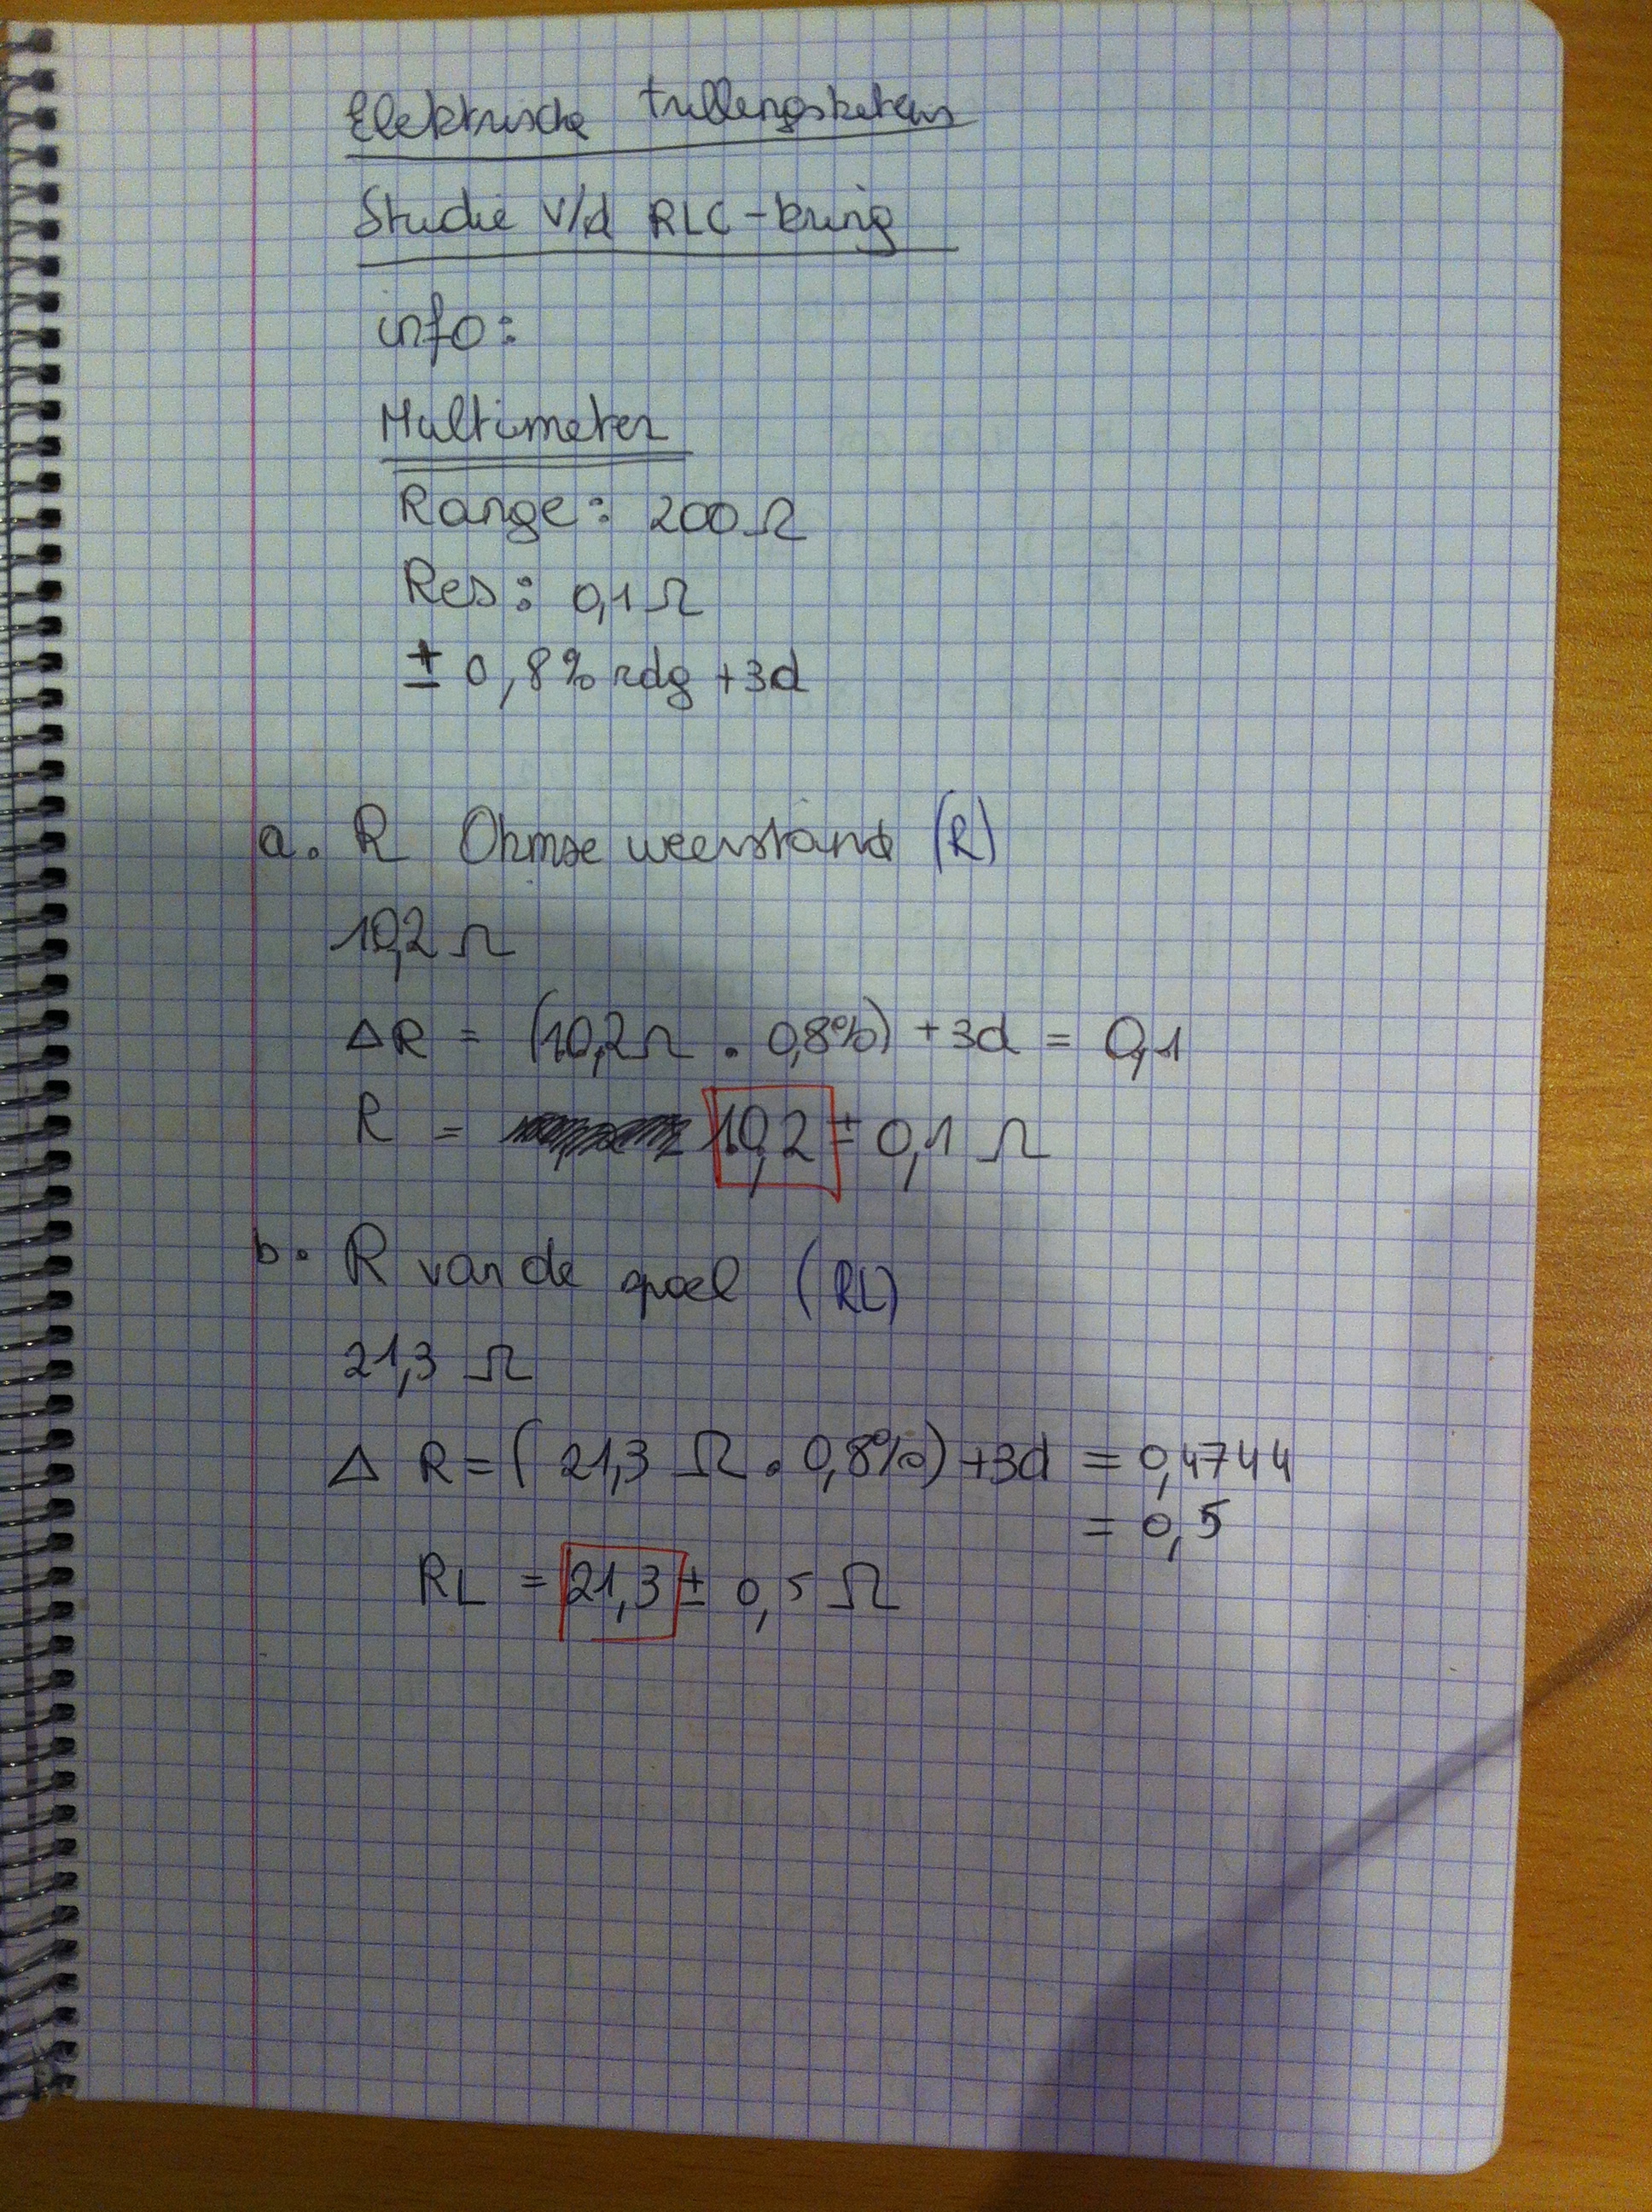 Elektrische trillingsketens
Studie v/d RLC-kring
info:
Multimeter
Range: 200Ω
Res: 0,1Ω
± 0,8% rdg +3d
a. R Ohmse weerstand (R)
10,2 Ω
ΔR = (10,2Ω . 0,8%) +3d = 0,1
R = 10,2 ± 0,1 Ω
b. R van de spoel (RL)
21,3 Ω
Δ R = (21,3 Ω . 0,8%) +3d = 0,4744
= 0,5
RL = 21,3 ± 0,5 Ω